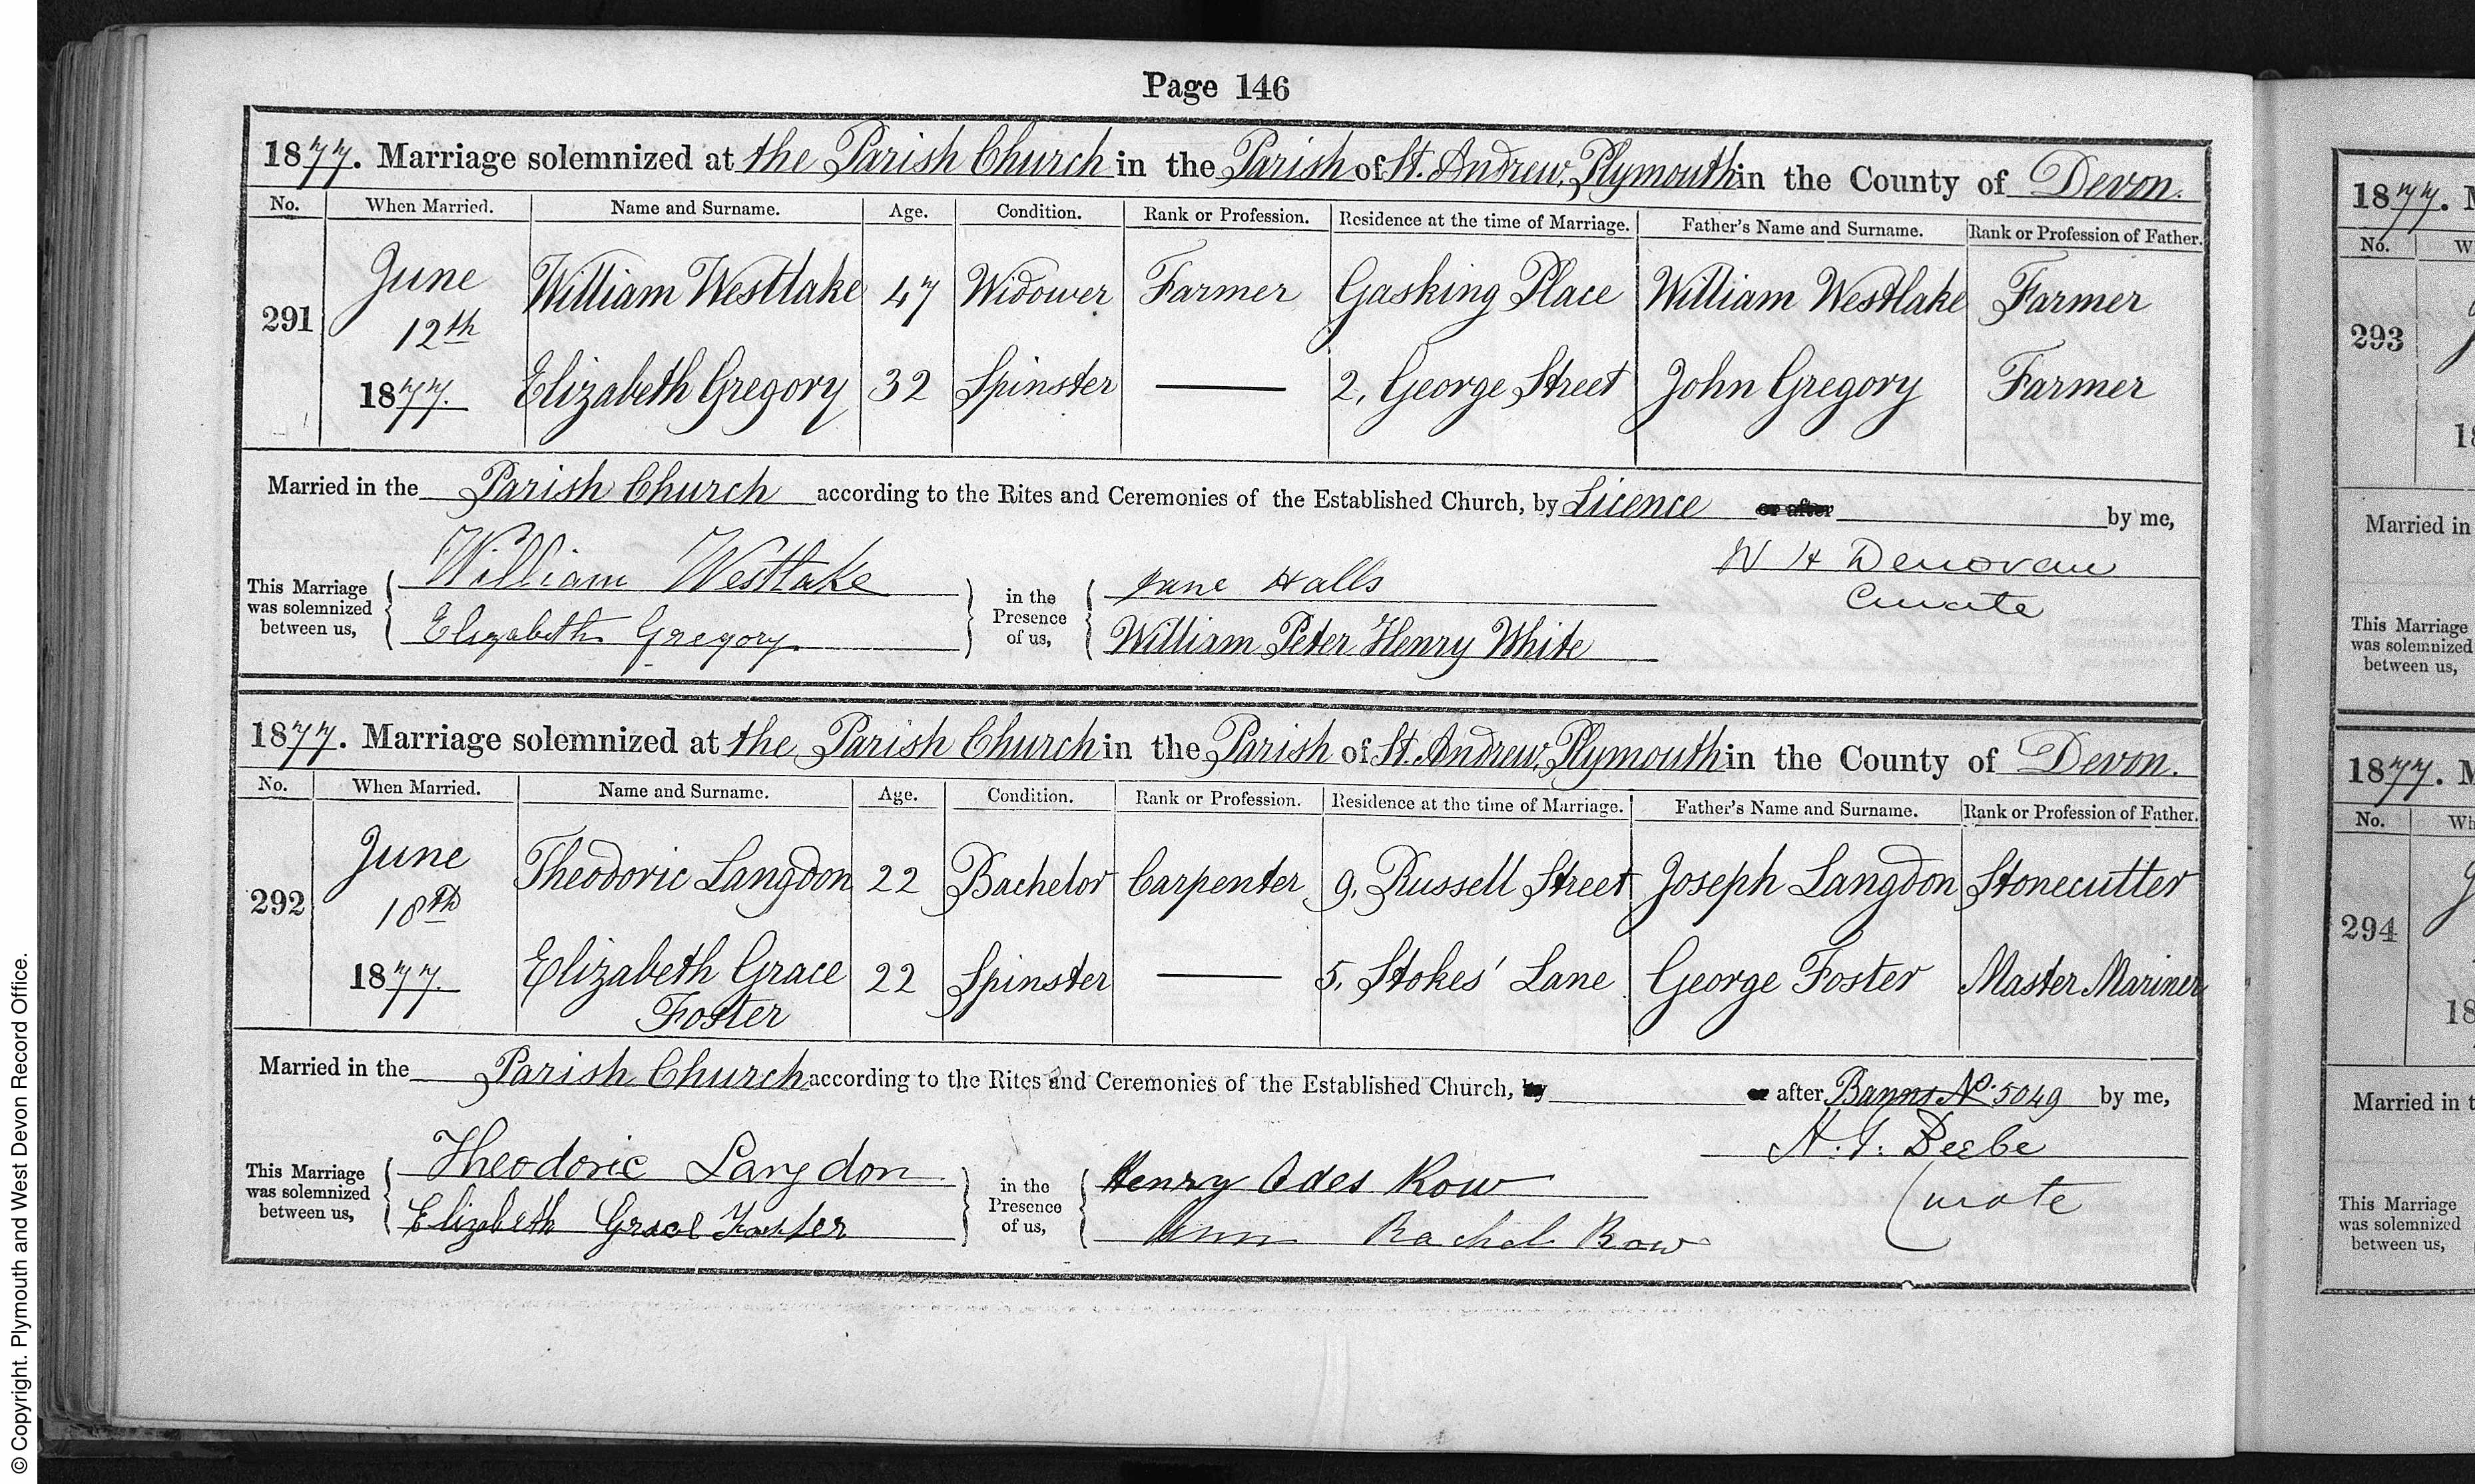 Page 146
1877. Marriage solemnized at the Parish Church in the Parish of St. Andrew, Plymouth in the County of Devon.
No. When Married. Name and Surname. Age. Condition. Rank or Profession. Residence at the time of Marriage. Father's Name and Surname. Rank or Profession of Father.
291 June 12th 1877. William Westlake 47 Widower Farmer Gasking Place William Westlake Farmer
Elizabeth Gregory 32 Spinster — 2, George Street John Gregory Farmer
Married in the Parish Church according to the Rites and Ceremonies of the Established Church, by Licence or after by me,
This Marriage was solemnized between us, William Westlake in the Presence of us, Jane Halls W H Denovan
Elizabeth Gregory William Peter Henry White Curate
1877. Marriage solemnized at the Parish Church in the Parish of St. Andrew, Plymouth in the County of Devon.
No. When Married. Name and Surname. Age. Condition. Rank or Profession. Residence at the time of Marriage. Father's Name and Surname. Rank or Profession of Father.
292 June 18th 1877. Theodoric Langdon 22 Bachelor Carpenter 9, Russell Street Joseph Langdon Stonecutter
Elizabeth Grace Foster 22 Spinster — 5, Stokes' Lane George Foster Master Mariner
Married in the Parish Church according to the Rites and Ceremonies of the Established Church, by or after Banns No. 5049 by me,
This Marriage was solemnized between us, Theodoric Langdon in the Presence of us, Henry Odes Row H. G. Beebe
Elizabeth Grace Foster Ann Rachel Row Curate
1877. M
No. W
293
18
Married in
This Marriage
was solemnized
between us,
1877. M
No. Wh
294
18
Married in t
This Marriage
was solemnized
between us,
© Copyright. Plymouth and West Devon Record Office.